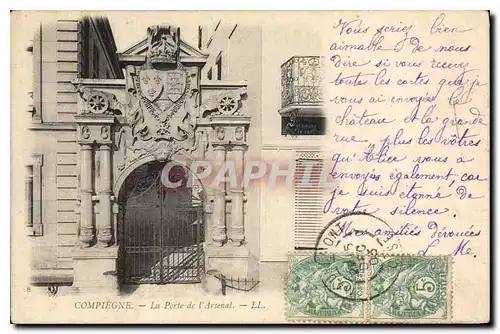 Vous seriez bien
aimable de nous
dire si vous recevez
toutes les cartes que je
vous ai envoyées le
château et la grande
rue, plus les vôtres
qu'Alice vous à
envoyés également car
je suis étonné de
votre silence.
Mes amitiés dévouées
L. Me.
CPARAMA
8 COMPIÈGNE. - La Porte de l'Arsenal. - LL.
5 5